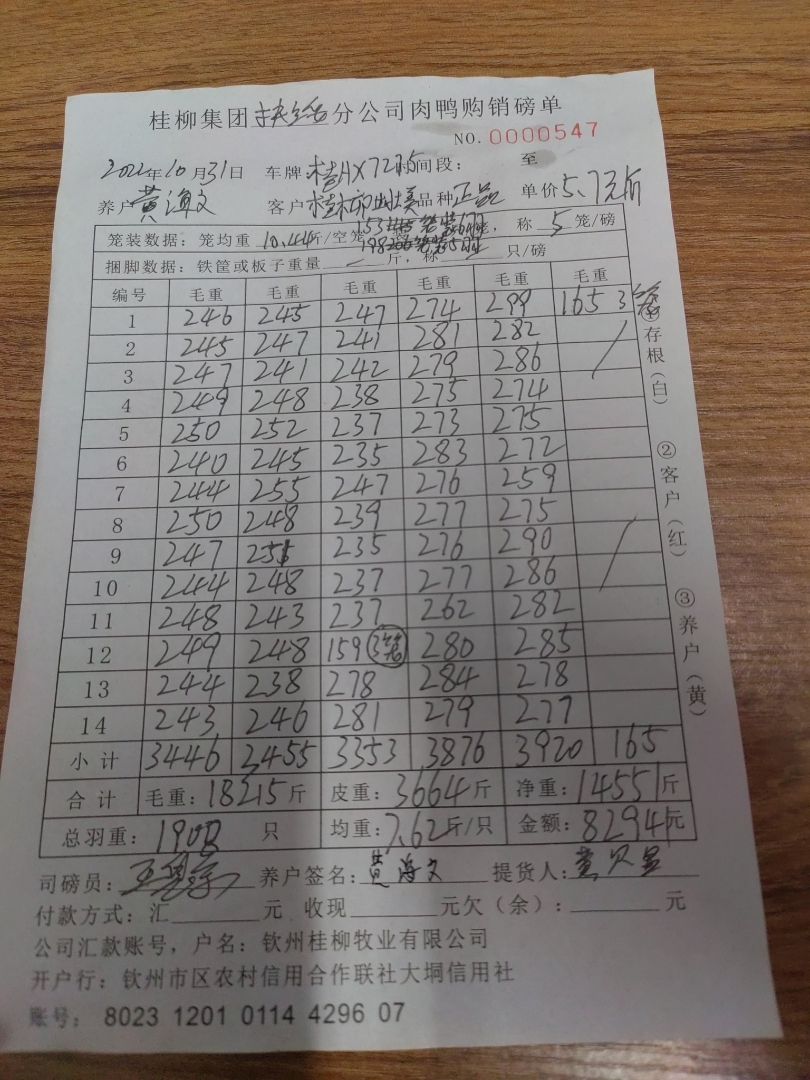 桂柳集团 分公司肉鸭购销磅单
NO. 0000547
2022年10月31日 车牌:桂HX7275 时间段: 至
养户 黄海文 客户 桂林 品种 正品 单价5.7元/斤
笼装数据: 笼均重 10.44斤/空笼 153 198 称 5 笼/磅
捆脚数据: 铁筐或板子重量 — 斤, 称 只/磅
编号 毛重 毛重 毛重 毛重 毛重 毛重
1 246 245 247 274 299 165 3笼
2 245 247 241 281 282
3 247 241 242 279 286
4 249 248 238 275 274
5 250 252 237 273 275
6 240 245 235 283 272
7 244 255 247 276 259
8 250 248 239 277 275
9 247 251 235 276 290
10 244 248 237 277 286
11 248 243 237 262 282
12 249 248 159 3笼 280 285
13 244 238 278 284 278
14 243 246 281 279 277
小计 3446 3455 3353 3876 3920 165
合计 毛重: 18215斤 皮重: 3664斤 净重: 14551斤
总羽重: 1908 只 均重: 7.62斤/只 金额: 82941元
司磅员: 养户签名: 黄海文 提货人:
付款方式: 汇 元 收现 元欠(余): 元
公司汇款账号, 户名: 钦州桂柳牧业有限公司
开户行: 钦州市区农村信用合作联社大垌信用社
账号: 8023 1201 0114 4296 07
①存根(白) ②客户(红) ③养户(黄)